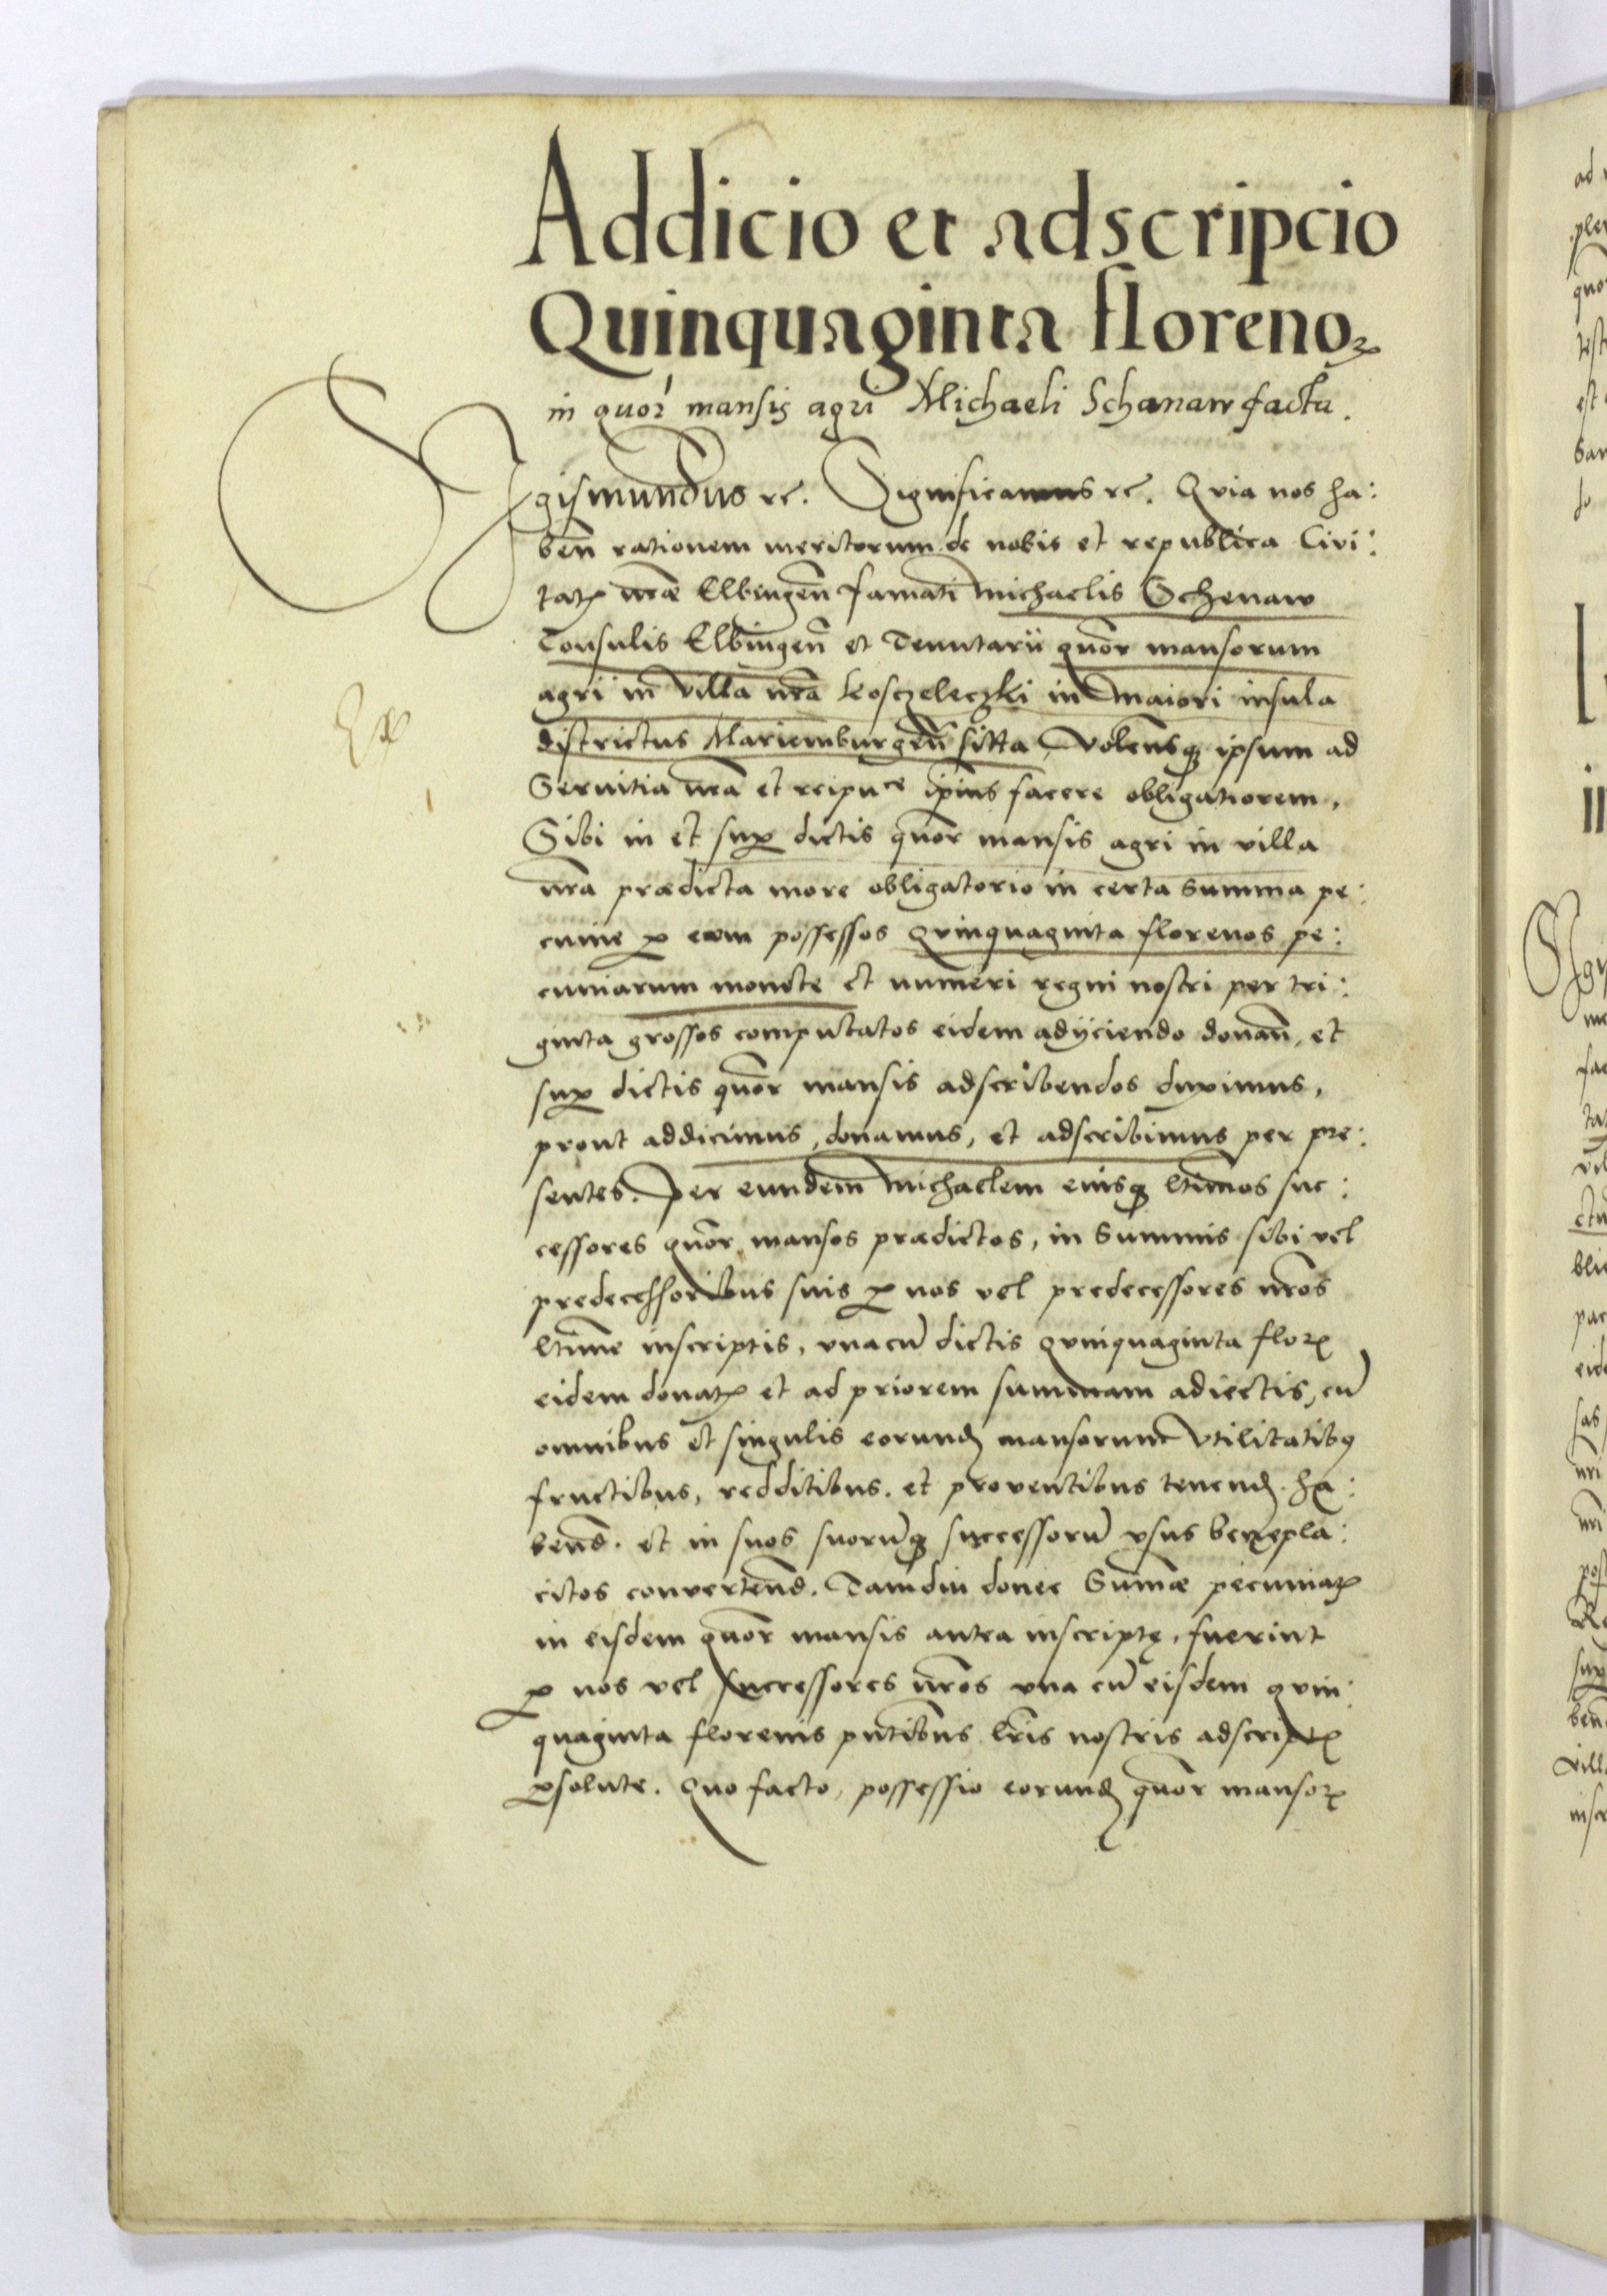 Addicio et adscripcio
Quinquaginta florenoꝝ
in quor mansis agri Michaeli Schanaw facta.
Sigismundus rc. Significamus rc. Quia nos ha:
ben̄ rationem meritorum de nobis et republica Civi:
tatꝭ nr̄æ Elbingen̄ famati Michaelis Schenaw
Consulis Elbingen̄ et Tenutarii quor̄ mansorum
agri in villa nr̄a Kosczeleczki in Maiori insula
districtus Mariemburgen̄ sitta, Volensqꝫ ipsum ad
Servitia nr̄a et reipuce ipius facere obligatiorem,
Sibi in et suꝑ dictis quor̄ mansis agri in villa
nr̄a prædicta more obligatorio in certa summa pe:
cunie ꝑ eum possessos quinquaginta florenos pe:
cuniarum monete et numeri regni nostri per tri:
ginta grossos computatos eidem adijciendo donan̄, et
suꝑ dictis quor̄ mansis adscribendos duximus,
prout addicimus, donamus, et adscribimus per pre:
sentes. Per eundem Michaelem eiusqꝫ ltimos suc:
cessores quor̄ mansos prædictos, in summis sibi vel
predecessoribus suis ꝑ nos vel predecessores nr̄os
ltime inscriptis, unacū dictis quinquaginta florꝭ
eidem donatꝭ et ad priorem summam adiectis, cū
omnibus et singulis eorundꝫ mansorum utilitatibꝫ
fructibus, redditibus. et proventibus tenendꝫ. ha:
bend. et in suos suorūqꝫ successorū usus benepla:
citos convertend. Tamdiu donec summæ pecuniaꝝ
in eisdem quor̄ mansis antea inscriptę, fuerint
ꝑ nos vel successores nr̄os una cū eisdem quin:
quaginta florenis pntibus lr̄is nostris adscriptꝭ
ꝑsolute. Quo facto, possessio eorundꝫ quor̄ mansoꝝ